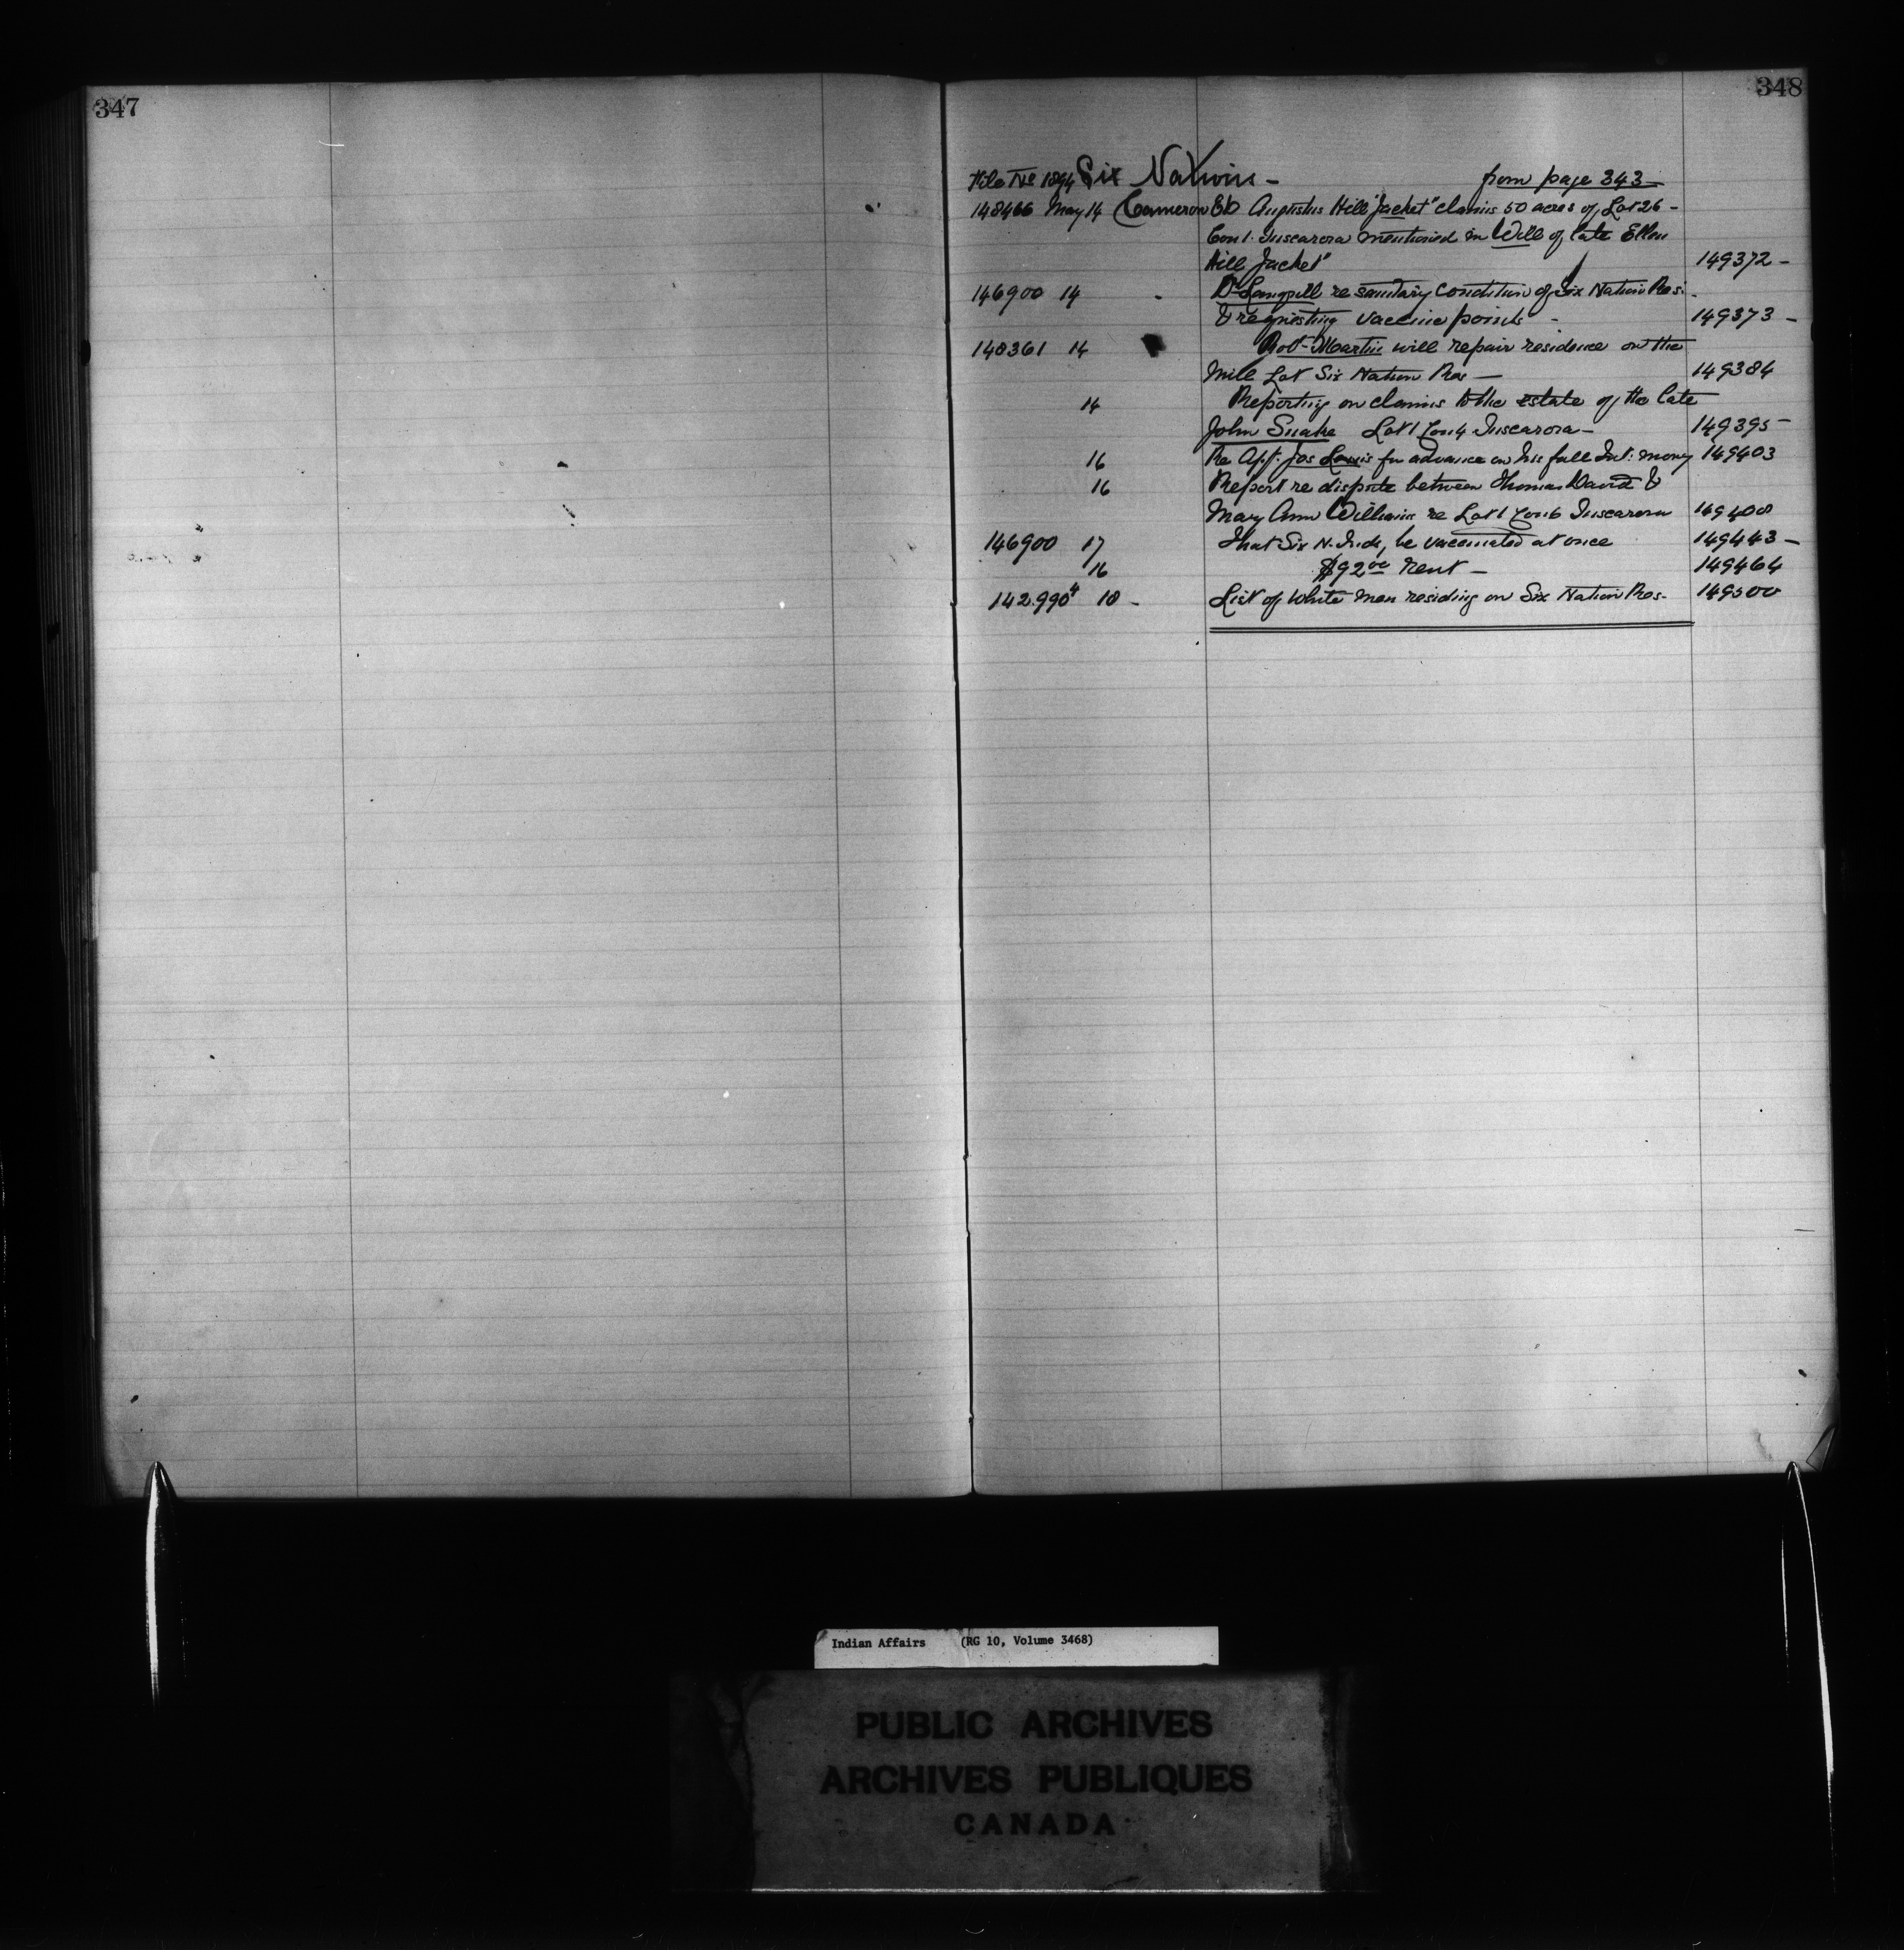 347
348
File No 1894 Six Nations - from page 343
148466 May 14 Cameron ED Augustus Hill "Jacket" claims 50 acres of Lot 26 -
Con 1. Tuscarora mentioned in Will of late Ellen
Hill Jacket" 149372 -
146900 14 Dr Langrill re sanitary condition of Six Nation Res.
& requesting vaccine points - 149373 -
148361 14 Robt Martin will repair residence on the
Mill Lot Six Nation Res - 149384
14 Reporting on claims to the estate of the late
John Snake Lot 1 Con 4 Tuscarora - 149395 -
16 Re App. Jos Lewis for advance on his fall Int: money 149403
16 Report re dispute between Thomas David &
Mary Ann Williams re Lot 1 Con 6 Tuscarora 149408
146900 17 That Six N. Inds, be vaccinated at once 149443 -
16 $92.00 rent - 149464
142.990 4 18 - List of White men residing on Six Nation Res - 149500
Indian Affairs (RG 10, Volume 3468)
PUBLIC ARCHIVES
ARCHIVES PUBLIQUES
CANADA